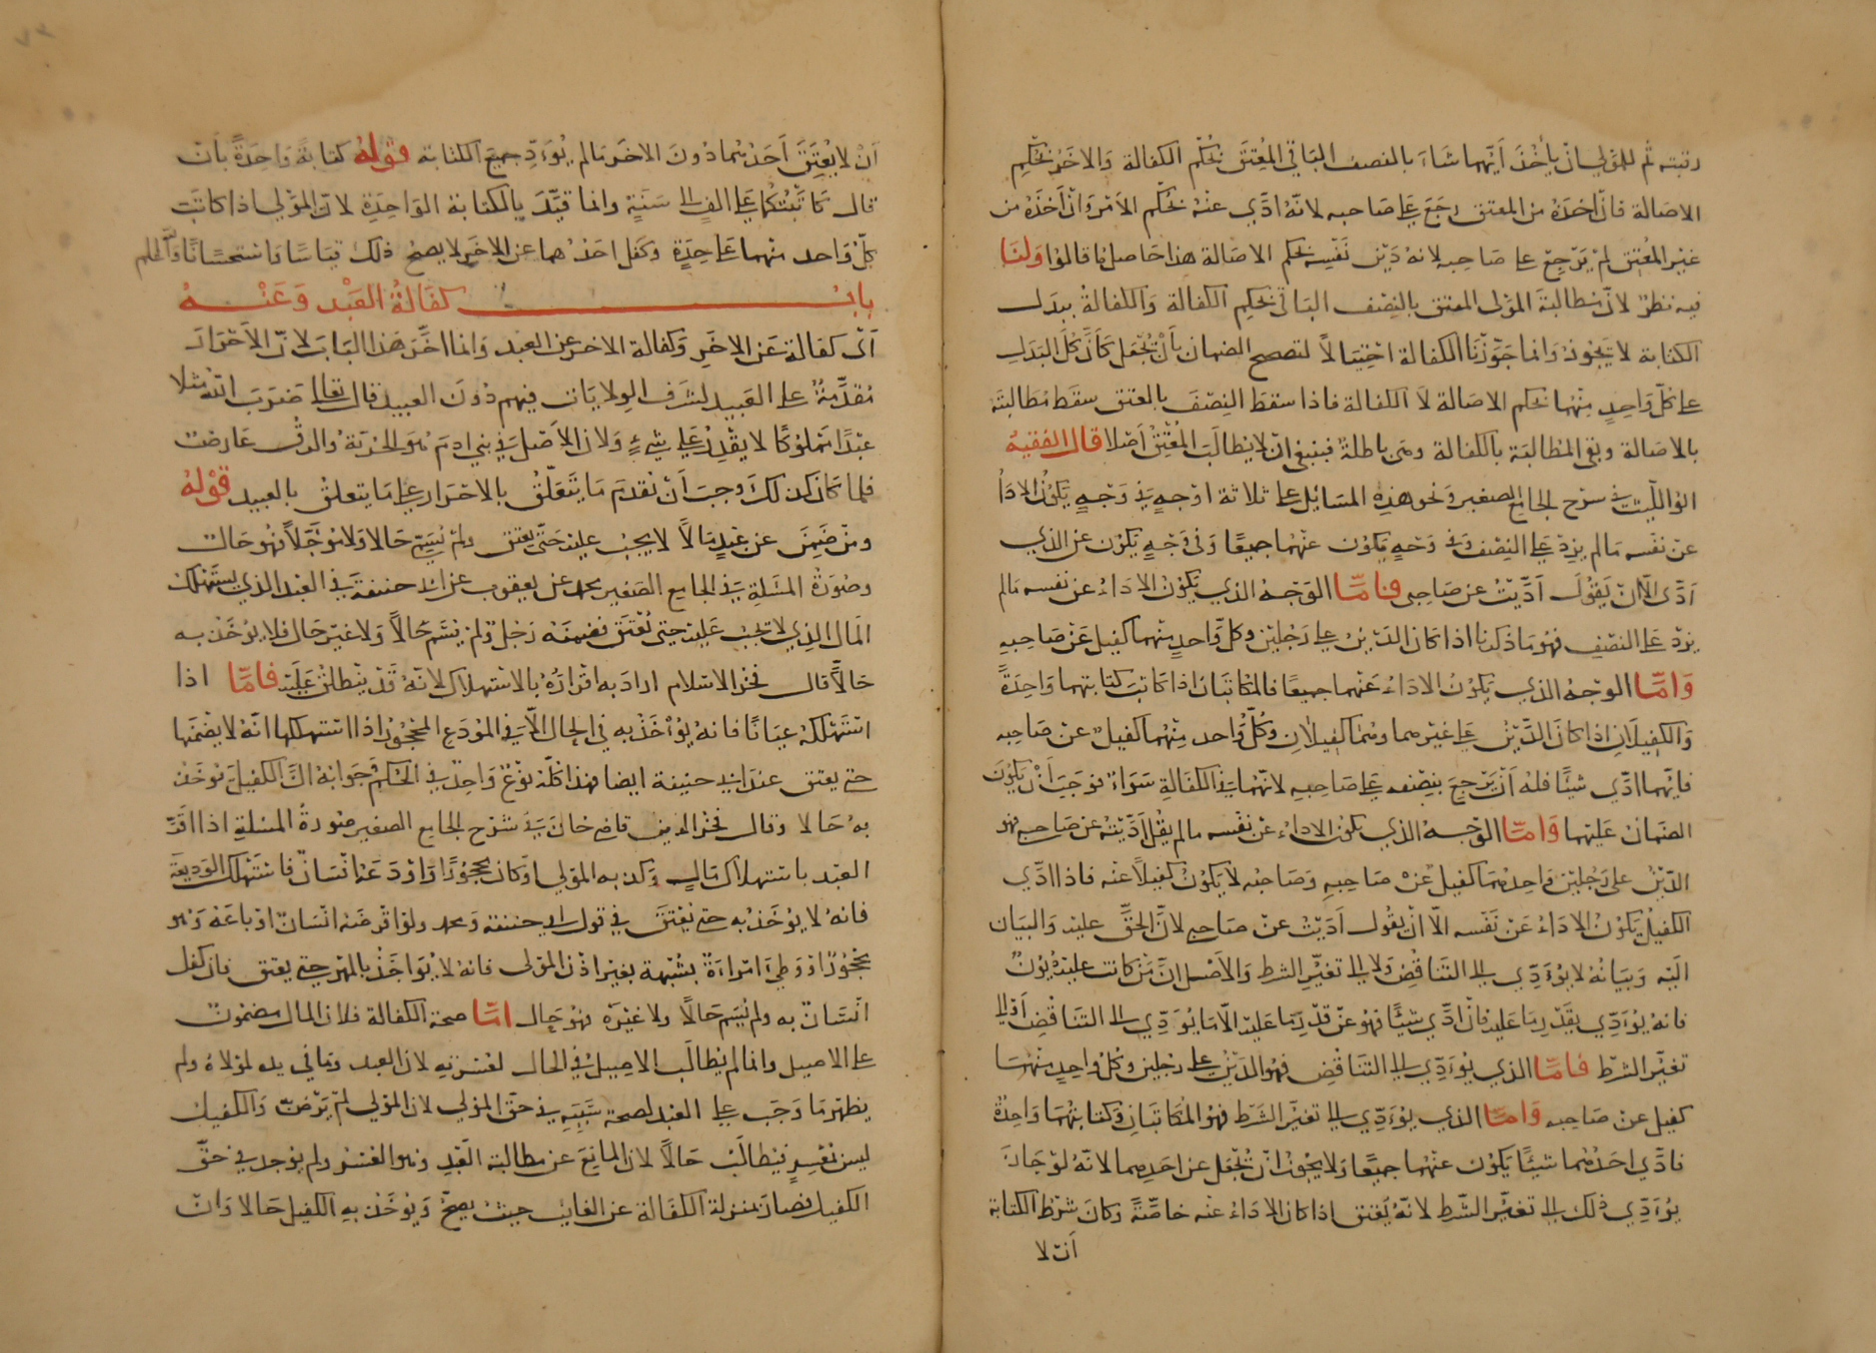 رقبته ثم للمولى ان يأخذ أيهما شاء بالنصف الباقي المعتق بحكم الكفالة والاخر بحكم
الاصالة فان اخذه من المعتق رجع على صاحبه لانه ادي عنه بحكم الامر وان اخذه من
غير المعتق لم يرجع على صاحبه لانه دين نفسه بحكم الاصالة هذا حاصل ما قالوا ولنا
فيه نظر لان مطالبة المولى المعتق بالنصف الباقي بحكم الكفالة والكفالة ببدل
الكتابة لا يجوز وانما جوزنا الكفالة احتيالا لتصحح الضمان بأن يجعل كأن كل البدل
على كل واحد منهما بحكم الاصالة لا الكفالة فاذا سقط النصف بالعتق سقط مطالبته
بالاصالة وبقي المطالبة بالكفالة وهي باطلة فينبغي ان لا يطالب المعتق أصلا قال الفقيه
ابو الليث في شرح الجامع الصغير ونحو هذه المسائل على ثلاثة اوجه في وجه يكون الاداء
عن نفسه ما لم يزد على النصف وفي وجه يكون عنهما جميعا وفي وجه يكون عن الذي
أدى الا ان يقول أديت عن صاحبي فاما الوجه الذي يكون الاداء عن نفسه ما لم
يزد على النصف فهو ما ذكرنا اذا كان الدين على رجلين وكل واحد منهما كفيل عن صاحبه
واما الوجه الذي يكون الاداء عنهما جميعا فالمكاتبان اذا كانت كتابتهما واحدة
والكفيلان اذا كان الدين على غيرهما وهما كفيلان وكل واحد منهما كفيل عن صاحبه
فايهما ادي شيئا فله أن يرجع بنصفه على صاحبه لانهما في الكفالة سواء فوجب أن يكون
الضمان عليهما واما الوجه الذي يكون الاداء عن نفسه ما لم يقل أديته عن صاحبي فهو
الدين على رجلين واحدهما كفيل عن صاحبه وصاحبه لا يكون كفيلا عنه فاذا ادي
الكفيل يكون الاداء عن نفسه الا ان يقول أديت عن صاحبي لان الحق عليه والبيان
اليه وبيانه لا يؤدي الى التناقض ولا الى تغير الشرط والاصل ان من كانت عليه ديون
فانه يؤدي بقدر ما عليه فان ادي شيئا فهو عن قدر ما عليه الا ما يؤدي الى التناقض أو الى
تغير الشرط فاما الذي يؤدي الى التناقض فهو الدين على رجلين وكل واحد منهما
كفيل عن صاحبه واما الذي يؤدي الى تغير الشرط فهو المكاتبان وكتابتهما واحدة
فادي احدهما شيئا يكون عنهما جميعا ولا يجوز ان يجعل عن احدهما لانه لو جاز
يؤدي ذلك الى تغير الشرط لانه يعتق اذا كان الاداء عنه خاصة وكان شرط الكتابة
أن لا
أن لا يعتق أحدهما دون الاخر ما لم يؤد جميع الكتابة قوله كتابة واحدة بان
قال كاتبتكما على الف الى سنة وانما قيد بالكتابة الواحدة لان المولي اذا كاتب
كل واحد منهما على حدة وكفل احدهما عن الاخر لا يصح ذلك قياسا واستحسانا والله اعلم
باب كفالة العبد وعنه
أي كفالة عن الاخر وكفالة الاخر عن العبد وانما اخر هذا الباب لان الاحرار
مقدمة على العبيد لشرف الولايات فيهم دون العبيد قال تعالى ضرب الله مثلا
عبدا مملوكا لا يقدر على شيء ولان الاصل في بني ادم هو الحرية والرق عارض
فلما كان كذلك وجب أن نقدم ما يتعلق بالاحرار على ما يتعلق بالعبيد قوله
ومن ضمن عن عبد مالا لا يجب عليه حتى يعتق ولم يسم حالا ولا مؤجلا فهو حال
وصورة المسئلة في الجامع الصغير محمد عن يعقوب عن ابي حنيفة في العبد الذي يستهلك
المال الذي لا يجب عليه حتى يعتق فضمنه رجل ولم يسم حالا ولا غير حال فلا يؤخذ به
حالا قال فخر الاسلام اراد به اقراره بالاستهلاك لانه قد ينطلق عليه فاما اذا
استهلكه عيانا فانه يؤخذ به في الحال الا في المودع المحجور اذا استهلكها انه لا يضمنها
حتى يعتق عند ابي حنيفة ايضا فهذا كله نوع واحد في الحكم وجوابه ان الكفيل يؤخذ
به حالا وقال فخر الدين قاضي خان في شرح الجامع الصغير صورة المسئلة اذا اقر
العبد باستهلاك مال وكذبه المولي او كان محجورا واودعه انسان فاستهلك الوديعة
فانه لا يؤخذ به حتى يعتق في قول ابي حنيفة ومحمد ولو اقرضه انسان او باعه وهو
محجور او وطئ امراءة بشبهة بغير اذن المولى فانه لا يؤاخذ بالمهر حتى يعتق فان كفل
انسان به ولم يسم حالا ولا غيره فهو حال اما صحة الكفالة فلان المال مضمون
على الاصيل وانما لم يطالب الاصيل في الحال لعسرته لان العبد وما في يده لمولاه ولم
يظهر ما وجب على العبد لصحة سببه في حق المولي لان المولي لم يرض والكفيل
ليس بمعسر فيطالب حالا لان المانع عن مطالبة العبد وهو العسر ولم يوجد في حق
الكفيل فصار بمنزلة الكفالة عن الغايب حيث يصح ويؤخذ به الكفيل حالا وان